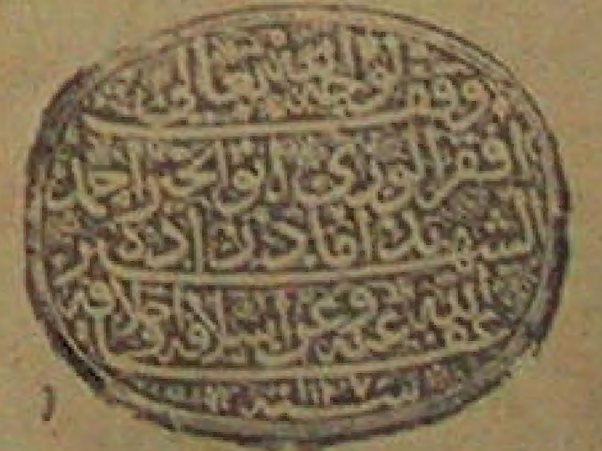 وقف لوجه الله تعالى
افقر الورى ابو الخير احمد
الشهير بدامادزاده
عفى الله عنه وعن اسلافه واخلافه
سنة